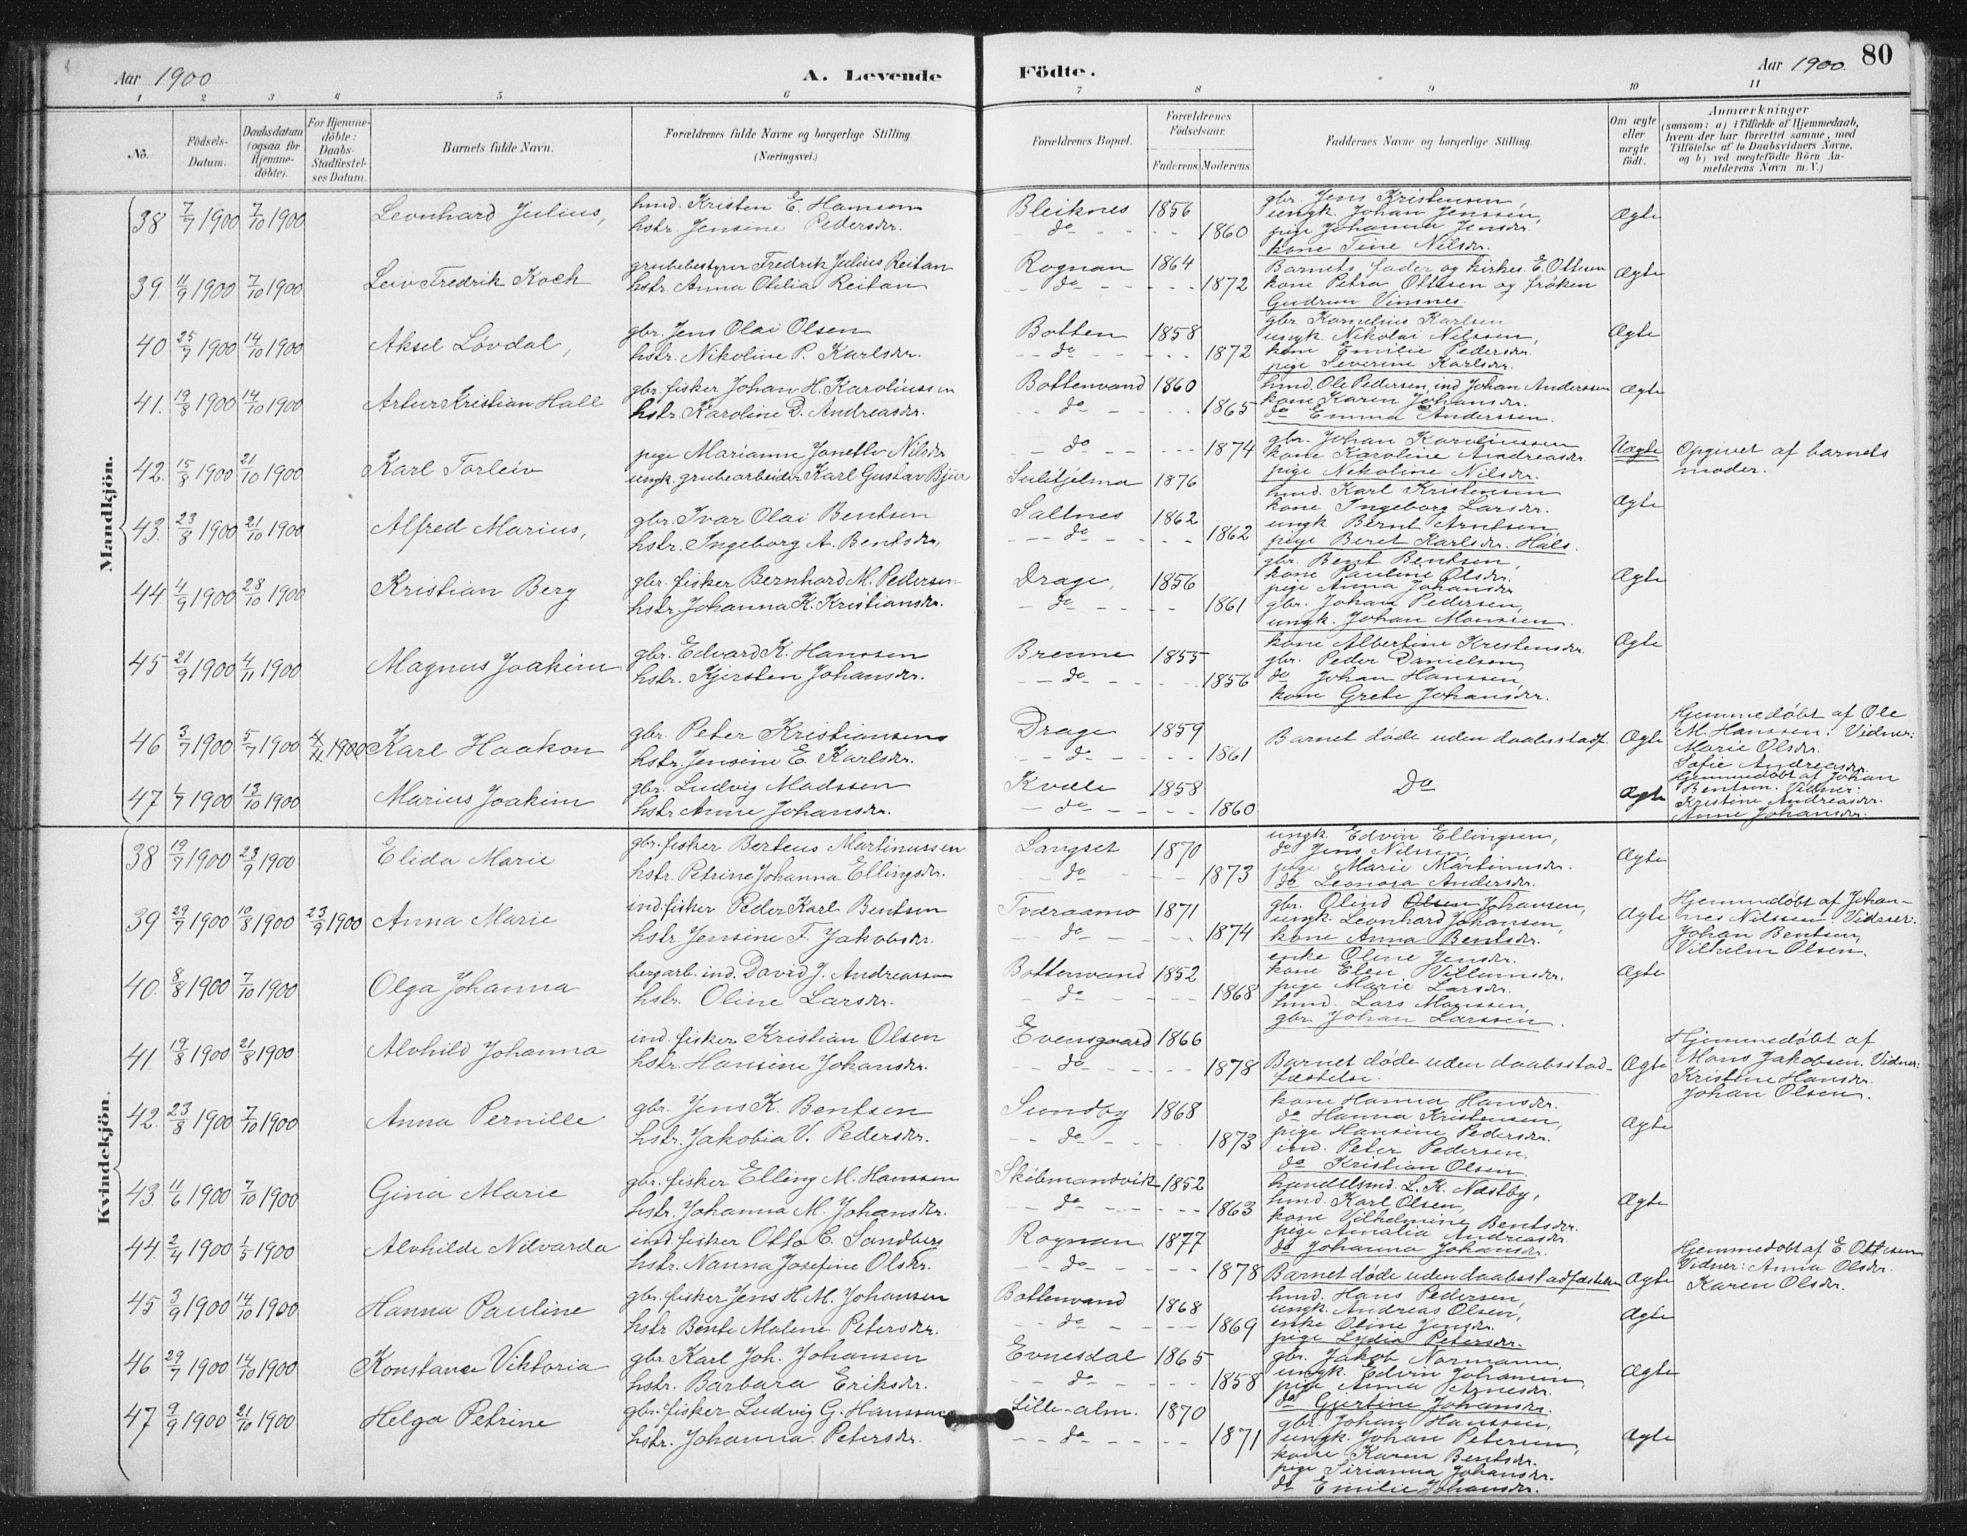 Aar 1900 A. Levende Födte. Aar 1900. 80
1 2 3 4 5 6 7 8 9 10 11
No.
Födsels-Datum.
Daabsdatum (ogsaa for Hjemme-döbte).
For Hjemme-döbte: Daabs-Stadfæstel-ses Datum.
Barnets fulde Navn.
Forældrenes fulde Navne og borgerlige Stilling. (Næringsvei.)
Forældrenes Bopæl.
Forældrenes Födselsaar.
Faderens. Moderens.
Faddernes Navne og borgerlige Stilling.
Om ægte eller uægte födt.
Anmærkninger
(saasom: a) i Tilfælde af Hjemmedaab, hvem der har forrettet samme, med Tilföielse af to Daabsvidners Navne, og b) ved uægtefödte Börn An-melderens Navn m. V.)
Mandkjön.
38 7/7 1900 7/10 1900 Leonhard Julius, hmd. Kristen E. Hansen Bleiknes 1856 gbr. Jens Kristensen, Ægte
hstr. Jensine Pedersdr. do 1860 ungk. Johan Jenssen,
pige Johanna Jensdr.
kone Tine Nilsdr.
39. 11/9 1900 7/10 1900 Leiv Fredrik Koch grubebestyrer Fredrik Julius Reitan Rognan 1864 Barnets fader og kirkes. E. Ottesen Ægte
hstr. Anna Otilia Reitan do 1872 kone Petra Ottesen og frøken
Gudrun Vinsnes.
40 25/7 1900 14/10 1900 Aksel Løvdal, gbr. Jens Olai Olsen Botten 1858 gbr. Kornelius Karlsen Ægte
hstr. Nikoline P. Karlsdr. do 1872 ungk. Nikolai Nilssen,
kone Emilie Pedersdr.
pige Severine Karlsdr.
41. 19/8 1900 14/10 1900 Artur Kristian Hall gbr. fisker Johan H. Karoliussen Bottenvand 1860 hmd. Ole Pedersen, ind. Johan Anderssen Ægte
hstr. Karoline D. Andreasdr. do 1865 kone Karen Johansdr.
do Emma Anderssen.
42. 15/8 1900 21/10 1900 Karl Torleiv pige Marianne Jonette Nilsdr do 1874 gbr. Johan Karoliussen Uægte Opgivet af barnets
ungk. grubearbeider Karl Gustav Bjur Sulitjelma 1876 kone Karoline Andreasdr. moder.
pige Nikoline Nilsdr.
43. 23/8 1900 21/10 1900 Alfred Marius, gbr. Ivar Olai Bentsen Saltnes 1862 hmd. Karl Kristensen Ægte
hstr. Ingeborg A. Bentsdr, do 1862 kone Ingeborg Larsdr.
ungk. Bernt Arntsen
pige Beret Karlsdr. Hals.
44 4/9 1900 28/10 1900 Kristian Berg gbr. fisker Bernhard M. Pedersen Drage, 1856 gbr. Bent Bentsen, Ægte
hstr. Johanna K. Kristiansdr. do 1861 kone Pauline Olsdr.
pige Anna Johansdr
gbr. Johan Pedersen,
ungk. Johan Monssen.
45 21/9 1900 4/11 1900 Magnus Joakim gbr. Edvard K. Hanssen Brenne 1855 kone Albertine Kristensdr. Ægte
hstr. Kjersten Johansdr. do 1856 gbr. Peder Danielsen
do Johan Hanssen
kone Grete Johansdr.
46 3/7 1900 5/7 1900 4/11 1900 Karl Haakon gbr. Peter Kristiansen Drage 1859 Barnet døde uden daabsstadf. Ægte Hjemmedøbt af Ole
hstr. Jensine E. Karlsdr. do 1861 M. Hanssen. Vidner:
Marie Olsdr.
Sofie Andreasdr.
47 1900 13/10 1900 Marius Joakim gbr. Ludvig Madssen Kvæle 1858 Do Ægte Hjemmedøbt af Johan
hstr Anne Johansdr. do 1860 Bentsen. Vidner:
Kristine Andreasdr.
Anne Johansdr.
Kvindekjön.
38 19/7 1900 23/9 1900 Elida Marie gbr. fisker Berteus Martinussen Langset 1870 ungk. Edvin Ellingsen, Ægte
hstr. Petrine Johanna Ellingsdr. do 1873 do Jens Nilssen
pige Marie Martinusdr.
do Leonora Andersdr.
39 29/7 1900 19/8 1900 23/9 1900 Anna Marie ind. fisker Peder Karl Bentsen Tverraamo 1871 gbr. Olind Olsen Johansen, Ægte Hjemmedøbt af Johan-
hstr Jensine T. Jakobsdr. do 1874 ungk. Leonhard Johansen, nes Nilssen. Vidner:
kone Anna Bentsdr. Johan Bentsen,
Vilhelm Olsen.
40. 8/8 1900 7/10 1900 Olga Johanna bergarb. ind. David J. Andreassen Bottenvand 1852 enke Oline Jensdr. Ægte
hstr. Oline Larsdr. do 1868 kone Elen Villumsdr.
pige Marie Larsdr.
hmd. Lars Monssen
gbr. Johan Larssen.
41 19/8 1900 21/8 1900 Alvhild Johanna ind. fisker Kristian Olsen Evensgaard 1866 Barnet døde uden daabsstad- Ægte Hjemmedøbt af
hstr. Hansine Johansdr. do 1878 fæstelse. Mons Jakobsen, Vidner:
Kristine Hansdr.
Johan Olsen.
42. 23/8 1900 7/10 1900 Anna Pernille gbr. Jens K. Bentsen Sundby 1868 kone Hanna Hansdr. Ægte
hstr. Jakobia V. Pedersdr. do 1873 do Hanna Kristensen,
pige Hansine Pedersdr.
ind. Peter Pedersen,
do Kristian Olsen
43. 11/6 1900 7/10 1900 Gina Marie gbr. fisker Elling M. Hanssen Skibmandvik 1852 handelsmd. L. K. Næstby, Ægte
hstr. Johanna M. Johansdr. do 1863 hmd. Karl Olsen,
kone Vilhelmine Bentsdr.
pige Amalia Andreasdr.
do Johanna Johansdr.
44. 2/4 1900 1/5 1900 Alvhilde Nilvarda ind. fisker Otto E. Sandberg Rognan 1877 Barnet døde uden daabsstadfæstelse Ægte Hjemmedøbt af E. Ottesen
hstr. Nanna Josefine Olsdr. do 1878 Vidner: Anna Olsdr.
Karen Olsdr.
45 3/9 1900 14/10 1900 Hanna Pauline gbr. fisker Jens H. M. Johansen Bottenvand 1868 hmd. Hans Pedersen, Ægte
hstr. Bente Malene Petersdr. do 1869 ungk. Andreas Olsen,
enke Oline Jensdr.
pige Lydia Petersdr.
46 29/7 1900 14/10 1900 Konstance Viktoria gbr Karl Joh. Johansen Evnesdal 1865 gbr. Jakob Normann, Ægte
hstr. Barbara Eriksdr. do 1858 ungk. Edvin Johansen,
pige Anna Arnesdr.
do Gjertine Johansdr.
47 9/9 1900 21/10 1900 Helga Petrine gbr. fisker Ludvig G. Hanssen Lille-alm. 1870 gbr. Johan Hanssen, Ægte
hstr. Johanna Petersdr. do 1871 ungk. Johan Petersen,
kone Karen Bentsdr.
pige Sirianna Johansdr.
do Emilie Johansdr.